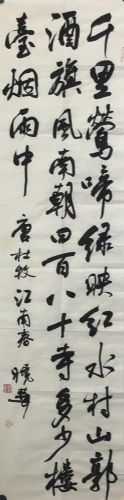 千里鶯啼绿映红水村山郭
酒旗風南朝四百八十寺多少樓
臺烟雨中 唐杜牧江南春 曉